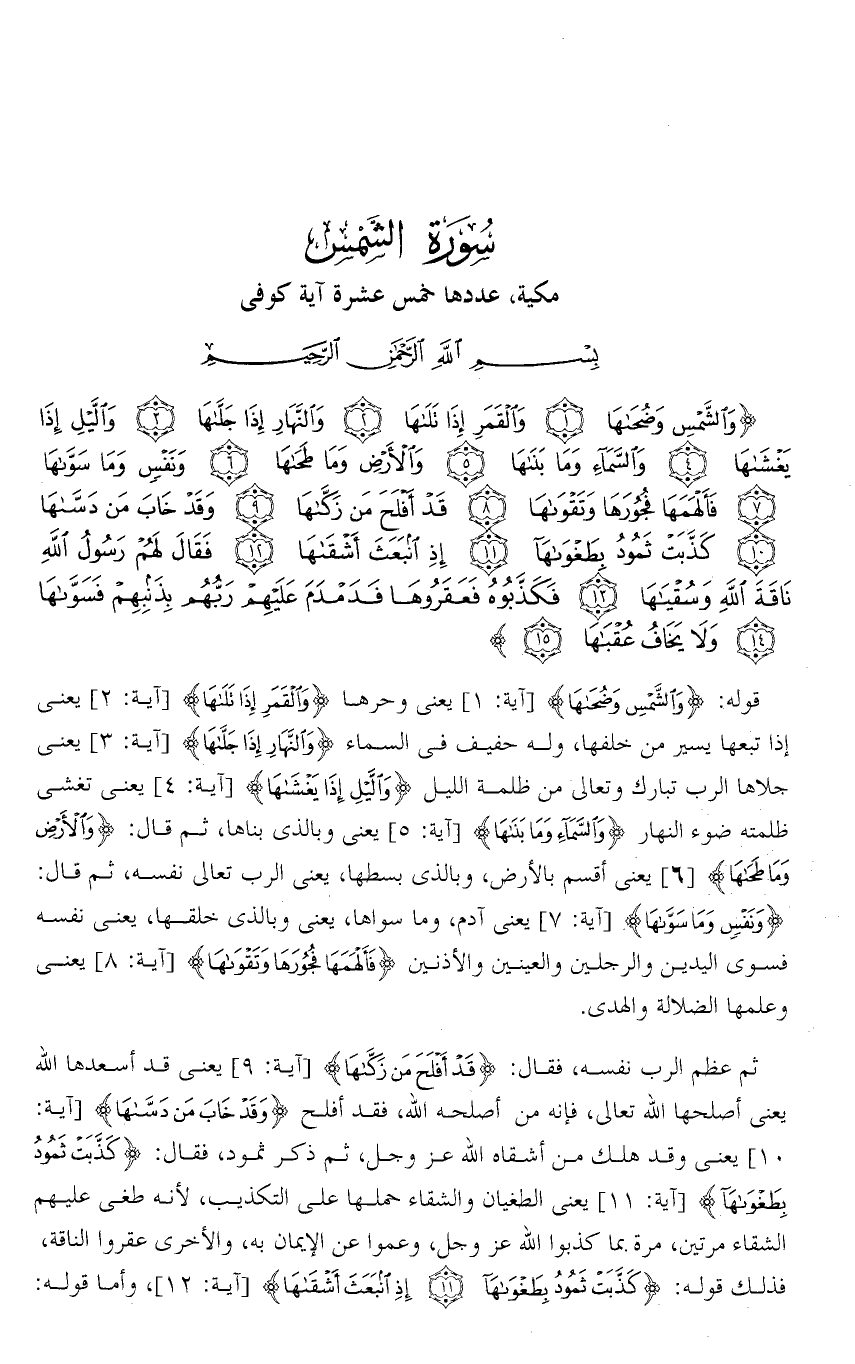 سُورَة الشَّمْس
مكية، عددها خمس عشرة آية كوفى
بِسْمِ ٱللَّهِ ٱلرَّحْمَٰنِ ٱلرَّحِيمِ
﴿وَٱلشَّمْسِ وَضُحَىٰهَا ١ وَٱلْقَمَرِ إِذَا تَلَىٰهَا ٢ وَٱلنَّهَارِ إِذَا جَلَّىٰهَا ٣ وَٱلَّيْلِ إِذَا
يَغْشَىٰهَا ٤ وَٱلسَّمَآءِ وَمَا بَنَىٰهَا ٥ وَٱلْأَرْضِ وَمَا طَحَىٰهَا ٦ وَنَفْسٍ وَمَا سَوَّىٰهَا
٧ فَأَلْهَمَهَا فُجُورَهَا وَتَقْوَىٰهَا ٨ قَدْ أَفْلَحَ مَن زَكَّىٰهَا ٩ وَقَدْ خَابَ مَن دَسَّىٰهَا
١٠ كَذَّبَتْ ثَمُودُ بِطَغْوَىٰهَآ ١١ إِذِ ٱنۢبَعَثَ أَشْقَىٰهَا ١٢ فَقَالَ لَهُمْ رَسُولُ ٱللَّهِ
نَاقَةَ ٱللَّهِ وَسُقْيَٰهَا ١٣ فَكَذَّبُوهُ فَعَقَرُوهَا فَدَمْدَمَ عَلَيْهِمْ رَبُّهُم بِذَنۢبِهِمْ فَسَوَّىٰهَا
١٤ وَلَا يَخَافُ عُقْبَٰهَا ١٥ ﴾
قوله: ﴿وَٱلشَّمْسِ وَضُحَىٰهَا﴾ [آية: ١] يعنى وحرها ﴿وَٱلْقَمَرِ إِذَا تَلَىٰهَا﴾ [آية: ٢] يعنى
إذا تبعها يسير من خلفها، وله حفيف فى السماء ﴿وَٱلنَّهَارِ إِذَا جَلَّىٰهَا﴾ [آية: ٣] يعنى
جلاها الرب تبارك وتعالى من ظلمة الليل ﴿وَٱلَّيْلِ إِذَا يَغْشَىٰهَا﴾ [آية: ٤] يعنى تغشى
ظلمته ضوء النهار ﴿وَٱلسَّمَآءِ وَمَا بَنَىٰهَا﴾ [آية: ٥] يعنى وبالذى بناها، ثم قال: ﴿وَٱلْأَرْضِ
وَمَا طَحَىٰهَا﴾ [٦] يعنى أقسم بالأرض، وبالذى بسطها، يعنى الرب تعالى نفسه، ثم قال:
﴿وَنَفْسٍ وَمَا سَوَّىٰهَا﴾ [آية: ٧] يعنى آدم، وما سواها، يعنى وبالذى خلقها، يعنى نفسه
فسوى اليدين والرجلين والعينين والأذنين ﴿فَأَلْهَمَهَا فُجُورَهَا وَتَقْوَىٰهَا﴾ [آية: ٨] يعنى
وعلمها الضلالة والهدى.
ثم عظم الرب نفسه، فقال: ﴿قَدْ أَفْلَحَ مَن زَكَّىٰهَا﴾ [آية: ٩] يعنى قد أسعدها الله
يعنى أصلحها الله تعالى، فإنه من أصلحه الله، فقد أفلح ﴿وَقَدْ خَابَ مَن دَسَّىٰهَا﴾ [آية:
١٠] يعنى وقد هلك من أشقاه الله عز وجل، ثم ذكر ثمود، فقال: ﴿كَذَّبَتْ ثَمُودُ
بِطَغْوَىٰهَآ﴾ [آية: ١١] يعنى الطغيان والشقاء حملها على التكذيب، لأنه طغى عليهم
الشقاء مرتين، مرة بما كذبوا الله عز وجل، وعموا عن الإيمان به، والأخرى عقروا الناقة،
فذلك قوله: ﴿كَذَّبَتْ ثَمُودُ بِطَغْوَىٰهَآ ١١ إِذِ ٱنۢبَعَثَ أَشْقَىٰهَا﴾ [آية: ١٢]، وأما قوله: